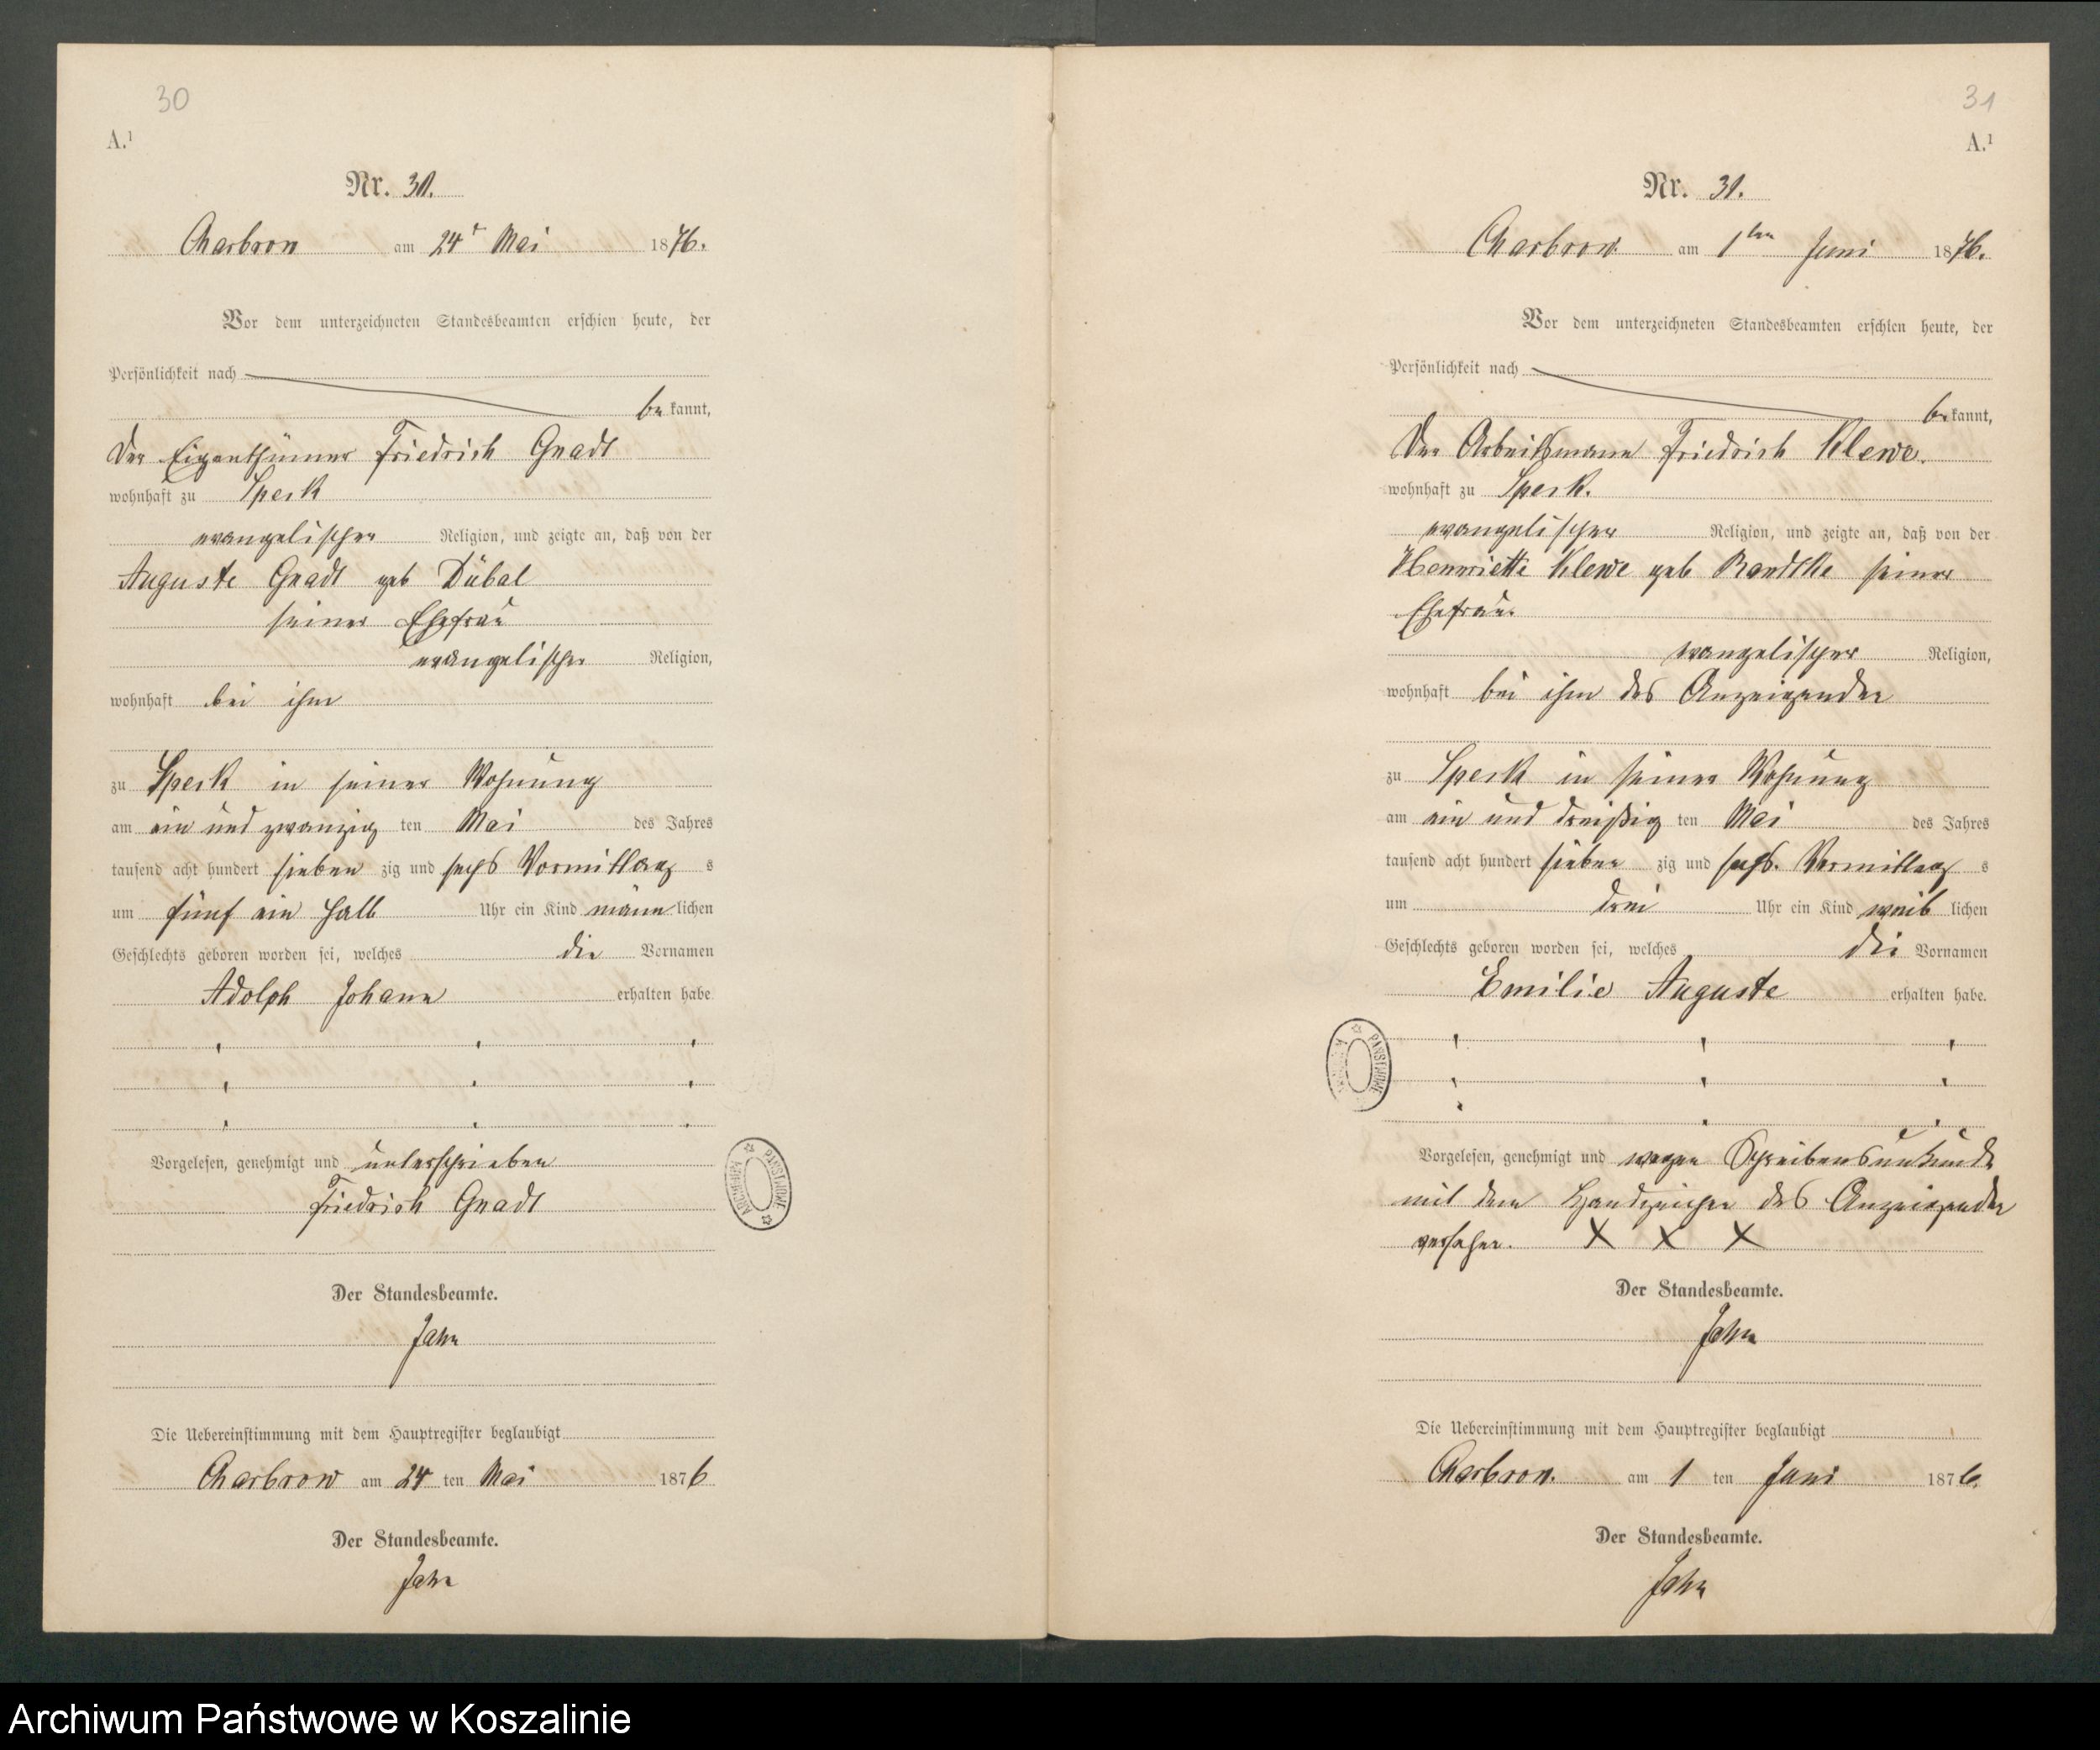 30
A.¹
Nr. 30.
Charbrow am 24t Mai 1876.
Vor dem unterzeichneten Standesbeamten erschien heute, der
Persönlichkeit nach
be kannt,
der Eigenthümer Friedrich Gnadt
wohnhaft zu Speck
evangelischer Religion, und zeigte an, daß von der
Auguste Gnadt geb Dübal
seiner Ehefrau
evangelischer Religion,
wohnhaft bei ihm
zu Speck in seiner Wohnung
am ein und zwanzig ten Mai des Jahres
tausend acht hundert sieben zig und sechs Vormittag s
um fünf ein halb Uhr ein Kind männ lichen
Geschlechts geboren worden sei, welches die Vornamen
Adolph Johann erhalten habe
Vorgelesen, genehmigt und unterschrieben
Friedrich Gnadt
Der Standesbeamte.
Jahn
Die Uebereinstimmung mit dem Hauptregister beglaubigt
Charbrow am 24 ten Mai 1876
Der Standesbeamte.
Jahn
31
A.¹
Nr. 31.
Charbrow am 1ten Juni 1876.
Vor dem unterzeichneten Standesbeamten erschien heute, der
Persönlichkeit nach
be kannt,
Der Arbeitsmann Friedrich Klewe.
wohnhaft zu Speck.
evangelischer Religion, und zeigte an, daß von der
Henriette Klewe geb Randtke seiner
Ehefrau.
evangelischer Religion,
wohnhaft bei ihm des Anzeigenden
zu Speck in seiner Wohnung
am ein und dreißig ten Mai des Jahres
tausend acht hundert sieben zig und sechs. Vormittag s
um drei Uhr ein Kind weib lichen
Geschlechts geboren worden sei, welches die Vornamen
Emilie Auguste erhalten habe.
Vorgelesen, genehmigt und wegen Schreibensunkunde
mit dem Handzeichen des Anzeigenden
versehen. X X X
Der Standesbeamte.
Jahn
Die Uebereinstimmung mit dem Hauptregister beglaubigt
Charbrow. am 1 ten Juni 1876.
Der Standesbeamte.
Jahn
Archiwum Państwowe w Koszalinie